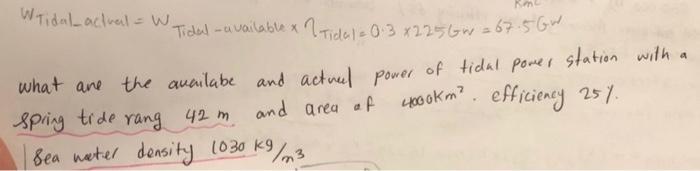 Km2
W Tidal_actual = W Tidal-available x η Tidal = 0.3 x 225 Gw = 67.5 Gw
what are the availabe and actual power of tidal power station with a
spring tide rang 42 m and area of 4000 Km². efficiency 25%.
Sea water density 1030 Kg/m3